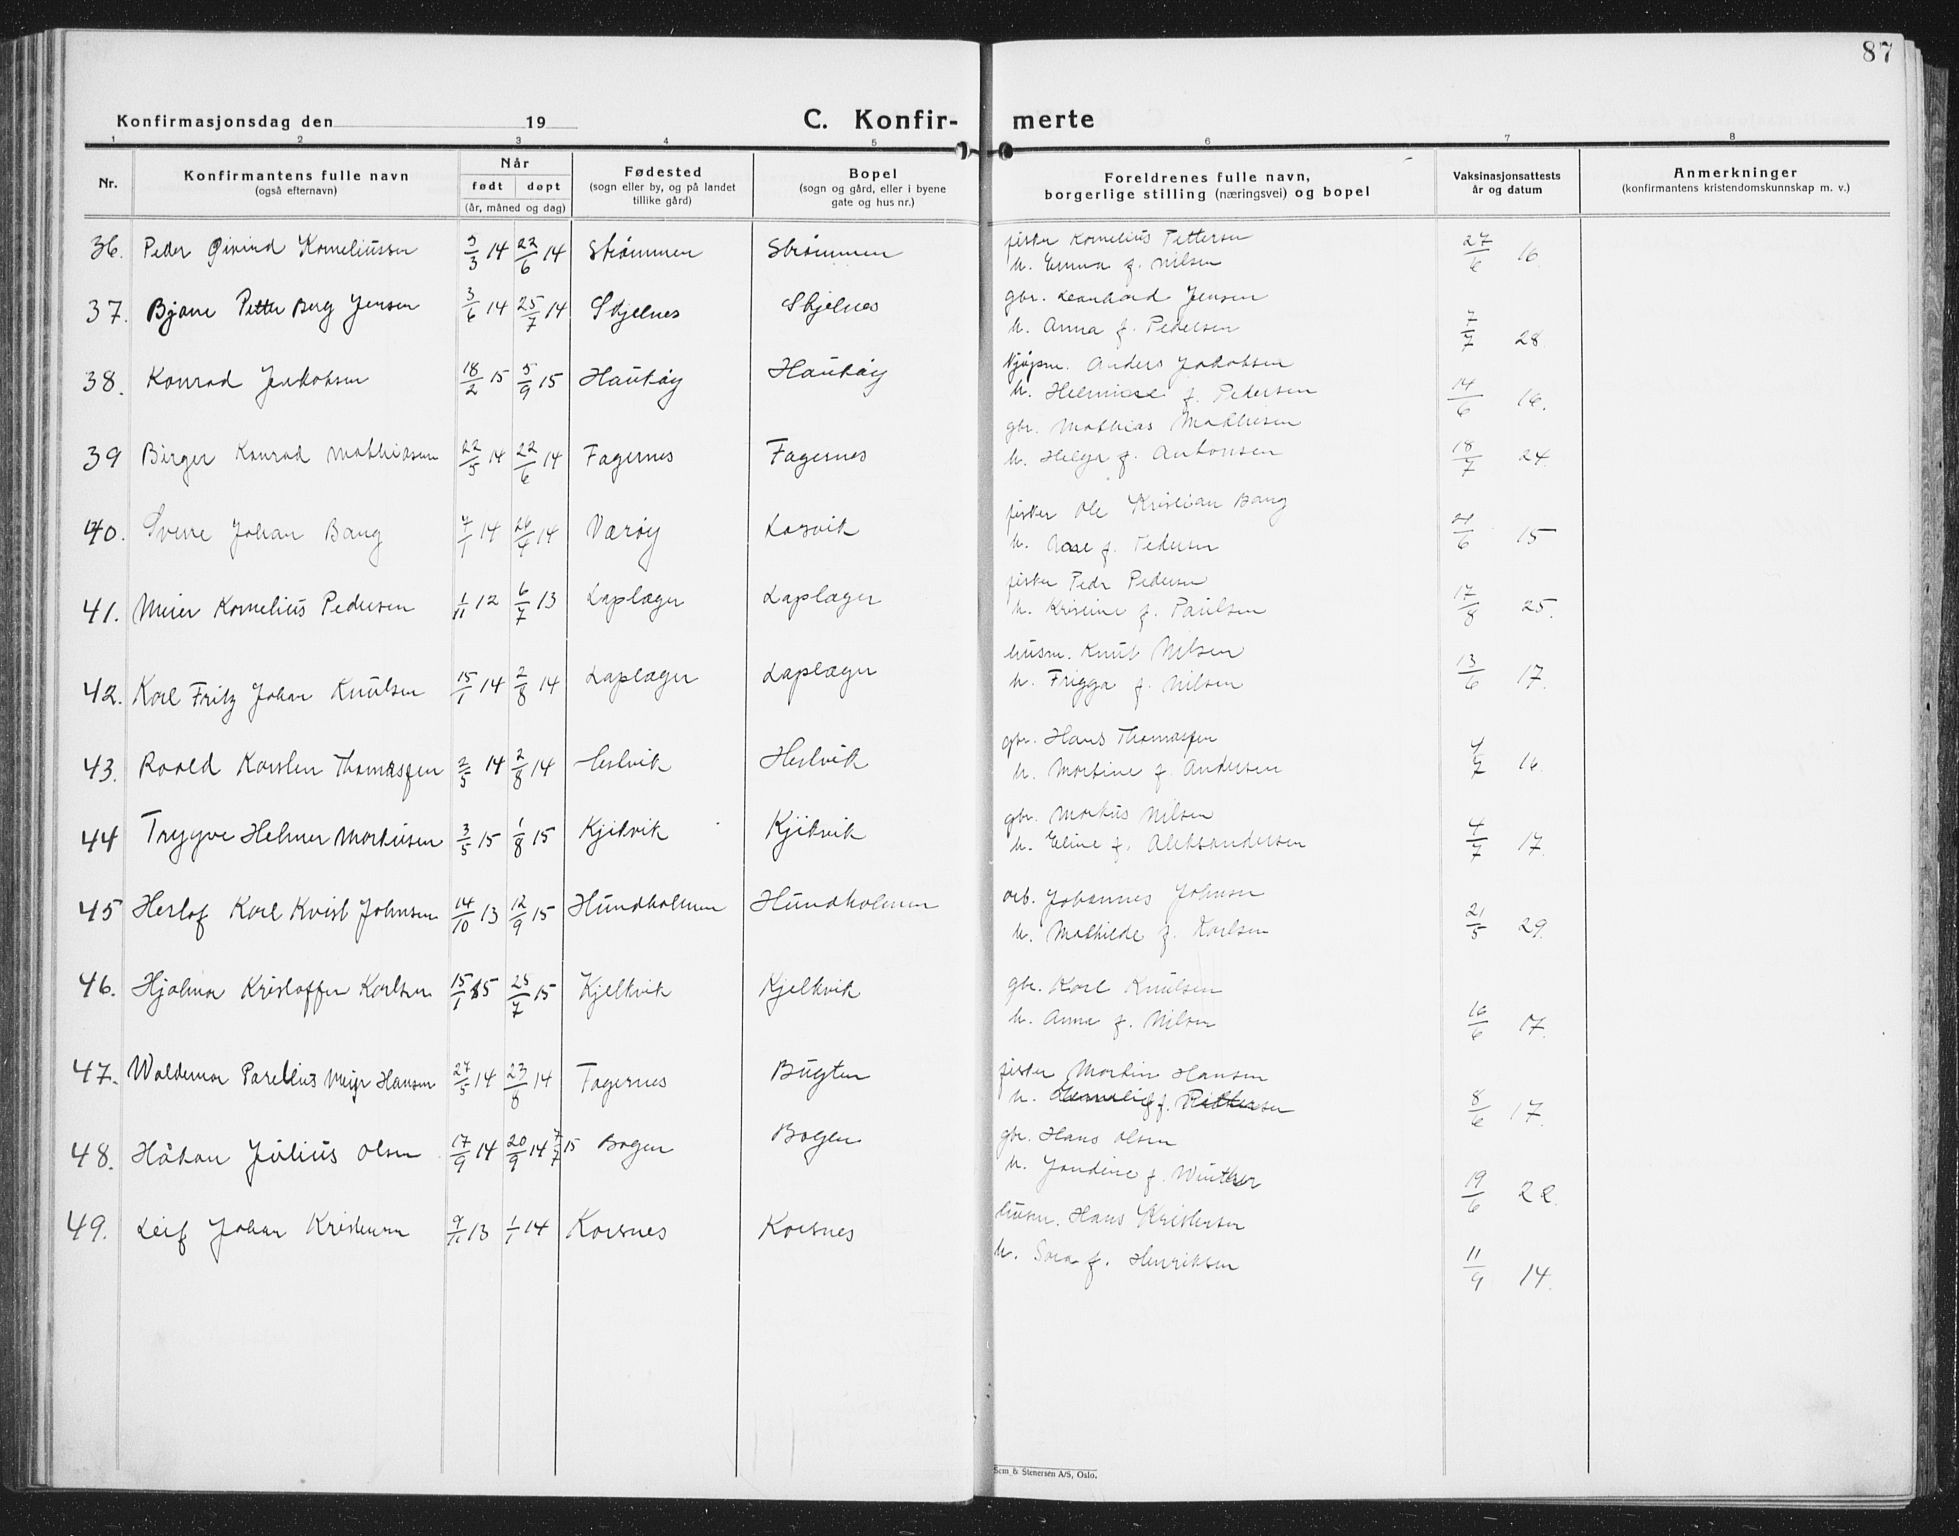 87
Konfirmasjonsdag den 19 C. Konfir- merte
1 2 3 4 5 6 7 8
Nr. Konfirmantens fulle navn (også efternavn) Når født døpt (år, måned og dag) Fødested (sogn eller by, og på landet tillike gård) Bopel (sogn og gård, eller i byene gate og hus nr.) Foreldrenes fulle navn, borgerlige stilling (næringsvei) og bopel Vaksinasjonsattests år og datum Anmerkninger (konfirmantens kristendomskunnskap m. v.)
36. Peder Øivind Korneliussen 5/3 14 22/6 14 Strømmen Strømmen fisker Kornelius Pettersen 27/6 16
h. Emma f. Nilsen
37. Bjarne Petter Berg Jensen 3/6 14 25/7 14 Skjelnes Skjelnes gbr. Leonhard Jensen
h. Anna f. Pedersen 7/7 28.
38. Konrad Jakobsen 18/2 15 5/9 15 Haukøy Haukøy Anders Jakobsen
h. f. Pedersen 14/6 16.
39 Birger Konrad Mathiasen 22/5 14 22/6 14 Fagernes Fagernes gbr. Mathias Mathisen
h. Helga f. Antonsen 18/7 24.
40. Sverre Johan Bang 14 14 Værøy Korsvik fisker Ole Kristian Bang
h. f. Pedersen 15
41. Meier Kornelius Pedersen 1/11 12 6/7 13 Laplæger Laplæger fisker Peder Pedersen
h. Kristine f. Paulsen 17/8 25.
42. Karl Fritz Johan Knutsen 15/1 14 2/8 14 Laplæger Laplæger husm. Knut Nilsen
h. Frigga f. Nilsen 13/6 17.
43. Roald Karsten Thomassen 2/5 14 2/8 14 Hestvik Hestvik gbr. Hans Thomassen
h. Martine f. Andersen 4/7 16.
44 Trygve Helmer Markusen 3/5 15 1/8 15 Kjikvik Kjikvik gbr. Markus Nilsen
h. Eline f. Aleksandersen 4/7 17.
45 Herlof Karl Kvist Johnsen 14/10 13 12/9 15 Hundholmen Hundholmen arb. Johannes Johnsen
h. Mathilde f. Karlsen 21/5 29.
46. Hjalmar Kristoffer Karlsen 15/1 15 25/7 15 Kjelkvik Kjelkvik gbr. Karl Knutsen
h. Anna f. Nilsen 16/6 17.
47. Waldemar Parelius Meyer Hansen 27/5 14 23/8 14 Fagernes Bugten fisker Martin Hansen
h. f. Pettersen 8/6 17.
48. Håkon Julius Olsen 17/9 14 20/9 14 7/7 15 Bogen Bogen gbr. Hans Olsen
h. Jondine f. Winther 19/6 22.
49. Leif Johan Kristensen 9/11 13 1/1 14 Korsnes Korsnes husm. Hans Kristensen
h. Sara f. Henriksen 11/9 14.
Sem & Stenersen A/S, Oslo.